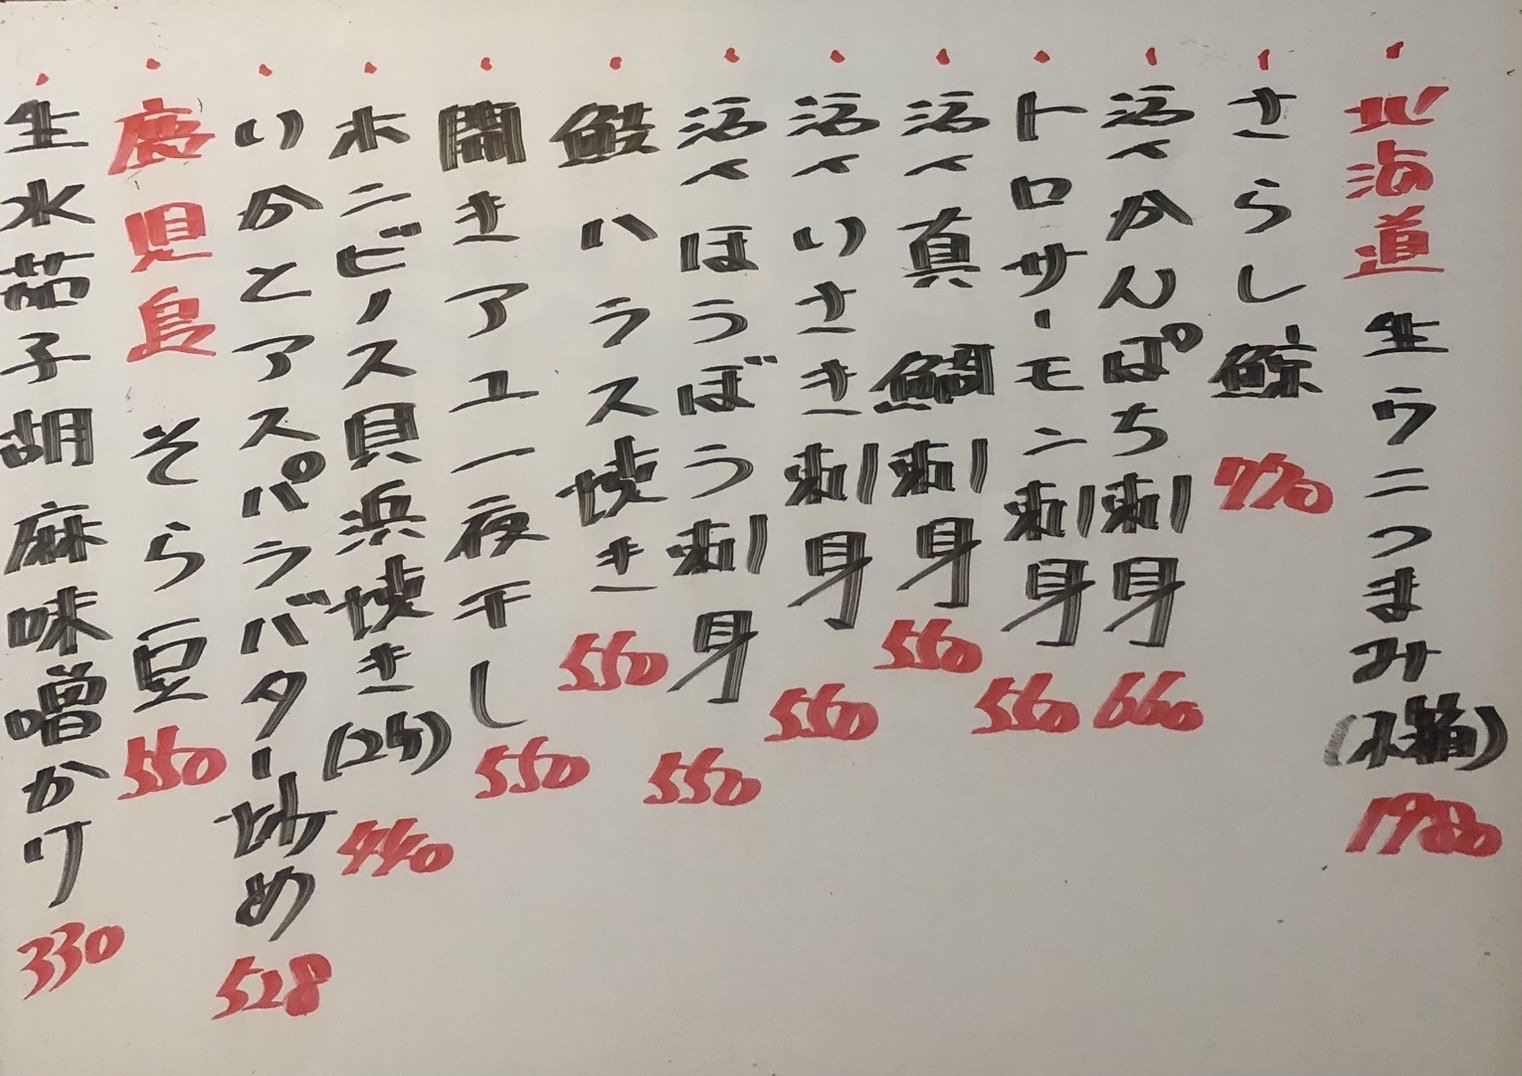 ・北海道 生ウニつまみ(木箱) 1980
・さらし鯨 770
・活〆かんぱち刺身 660
・トロサーモン刺身 550
・活〆真鯛刺身 550
・活〆いさき刺身 550
・活〆ほうぼう刺身 550
・鮭ハラス焼き 550
・開きアユ一夜干し 550
・ホンビノス貝浜焼き(2ヶ) 440
・いかとアスパラバター炒め 528
・鹿児島 そら豆 550
・生水茄子胡麻味噌かけ 330